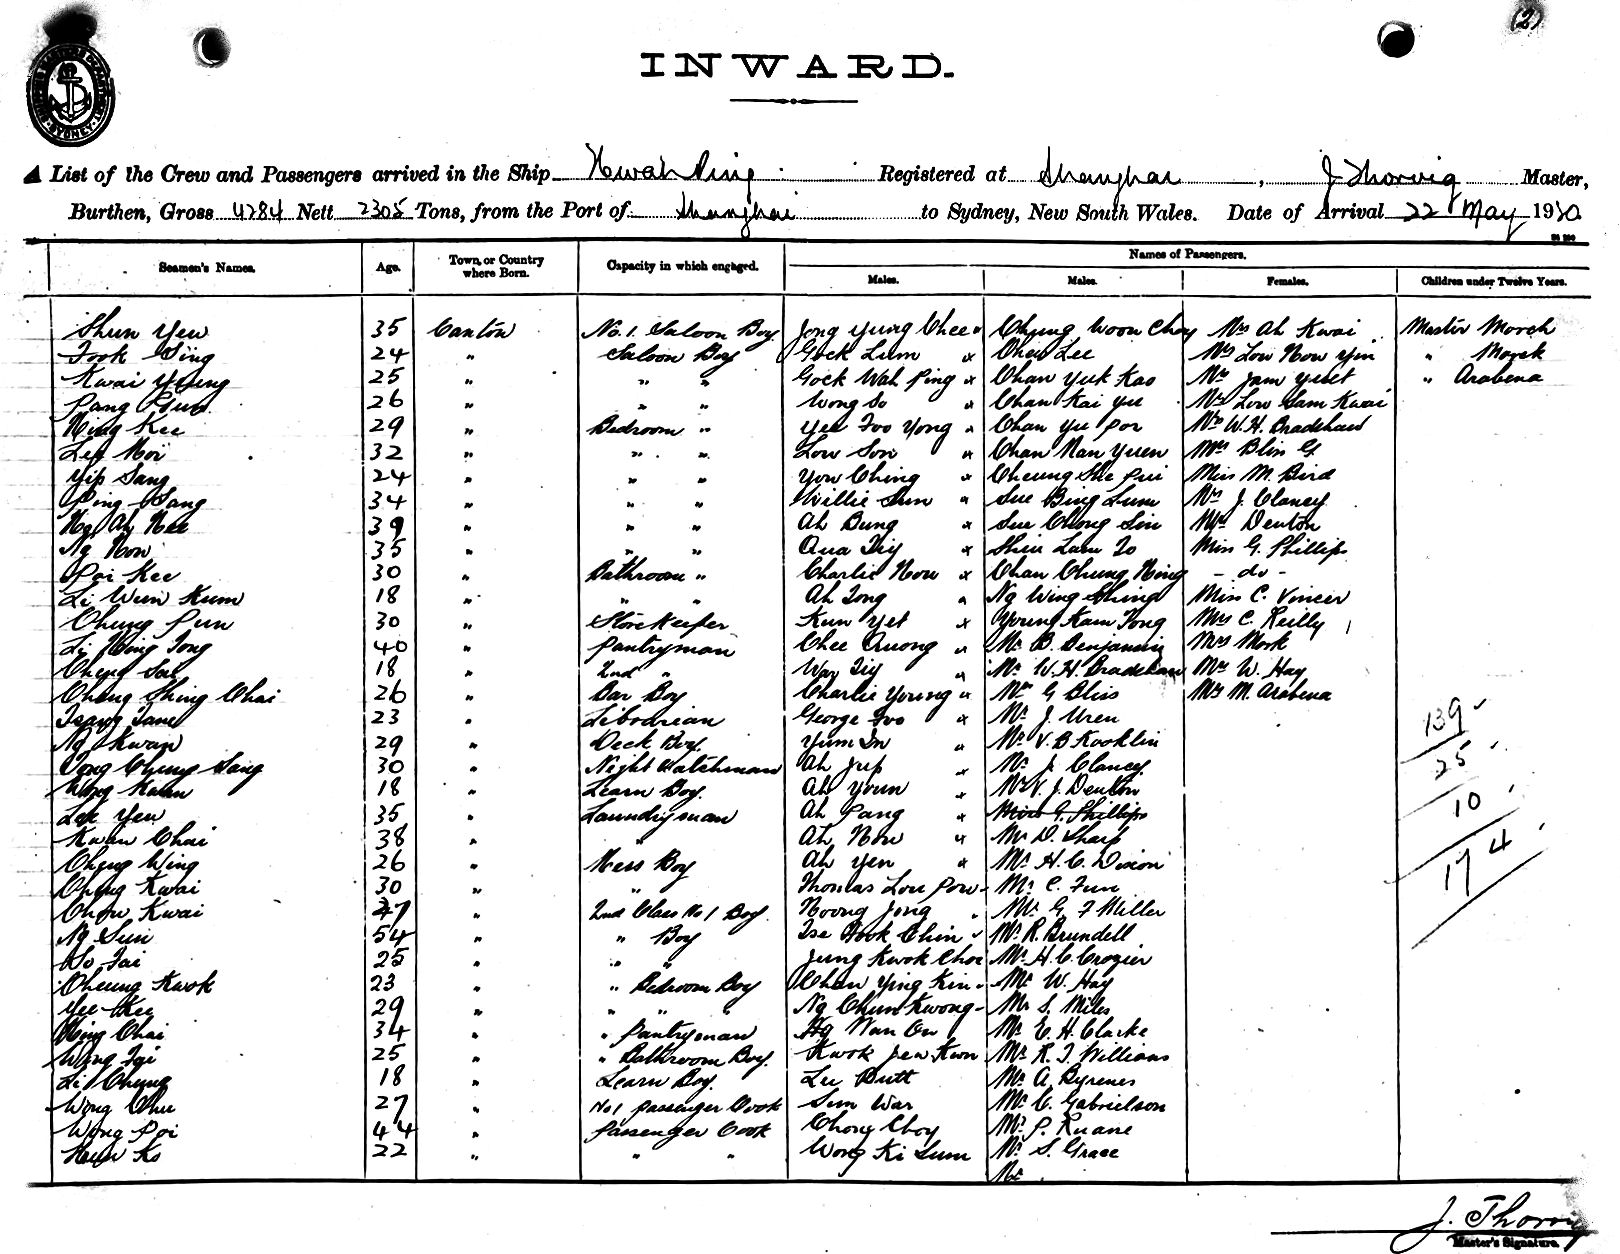 (2)
INWARD.
A List of the Crew and Passengers arrived in the Ship Hwah Ping Registered at Shanghai, J Thorvig Master,
Burthen, Gross 4284 Nett 2305 Tons, from the Port of Shanghai to Sydney, New South Wales. Date of Arrival 22 May 1920
Seamen's Names. Age. Town, or Country where Born. Capacity in which engaged. Names of Passengers.
Males. Males. Females. Children under Twelve Years.
Shun Yew 35 Canton No. 1. Saloon Boy Jong Yung Chee Chung Woon Choy Mrs Ah Kwai Master Morch
Fook Sing 24 " Saloon Boy Gock Lum x Chew Lee Mrs Low Now Yin " Morck
Kwai Yeung 25 " " " Gock Wah Ping x Chan Yuk Kao Mrs Jam Yuet " Arabena
Pang 26 " " " Wong So x Chan Kai Yu Mrs Low Sam Kwai
Ning Kee 29 " Bedroom " Yee Foo Yong x Chan Yu Por Mrs W. H. Bradshaw
Lee Moi 32 " " " Low Son x Chan Nan Yuen Mrs Blin G.
Yip Sang 24 " " " You Ching x Cheung She Pui Miss M. Bird
Ping Sang 34 " " " Willie Sun x Sue Bing Lum Mrs J. Clancy
Ng Ah Nee 39 " " " Ah Bung x Sue Chong Sin Mrs Denton
Ng Now 35 " " " Qua Tiy x Shiu Lam To Miss G. Phillips
Poi Kee 30 " Bathroom " Charlie Now x Chan Chung Ning - do -
Li Wun Kum 18 " " " Ah Tong x Ng Wing Shing Miss C. Vincer
Chung Pun 30 " Storekeeper Kun Yet x Young Kam Tong Mrs C. Reilly
Li Ning Tong 40 " Pantryman Chee Quong x Mr B. Benjamin Mrs Mork
Cheng Sai 18 " 2nd " War Tiy x Mr W. H. Bradshaw Mrs W. Hay
Chong Shing Chai 26 " Bar Boy Charlie Young x Mr G Bliss Mrs M. Arabena
Tsang Tane 23 " Librarian George Foo x Mr J. Uren 139
Ng Kwan 29 " Deck Boy. Yum In x Mr V. B Kooklin
Tong Chung Sang 30 " Night Watchman Ah Jup x Mr J. Clancy 25
Wong Kwan 18 " Learn Boy. Ah Youn x Mr V. J. Denton
Lee Yew 35 " Laundryman Ah Pang x Miss G. Phillips 10
Kwan Chai 38 " " Ah Now x Mr D. Sharp
Cheng Wing 26 " Mess Boy Ah Yen x Mr H. C. Dixon 174
Cheng Kwai 30 " " Thomas Lou Pow Mr C. Fun
Chow Kwai 47 " 2nd Class No 1 Boy. Noong Jong Mr G. F Miller
Ng Sun 54 " " Boy Tse Hook Chin Mr R. Brundell
Wo Tai 25 " " " Jung Kwok Choi Mr H. C. Crozier
Cheung Kwok 23 " " Bedroom Boy Chan Ying Kin Mr W. Hay
Yee Kee 29 " " " " Ng Chun Kwong Mr S. Miles
Ning Chai 34 " " Pantryman Ng Nan On Mr E. H. Clarke
Wong Tai 25 " " Bathroom Boy. Kwok Jew Kwn Mr R. J. Williams
Li Cheung 18 " Learn Boy. Lee Butt Mr A. Byrenes
Wong Chu 27 " No 1 Passenger Cook Sun War Mr C. Gabrielson
Wong Poi 44 " Passenger Cook Chong Choy Mr P. Ruane
Hun Ko 22 " " " Wong Ki Sum Mr S. Grace
Mr
J. Thorvig
Master's Signature.